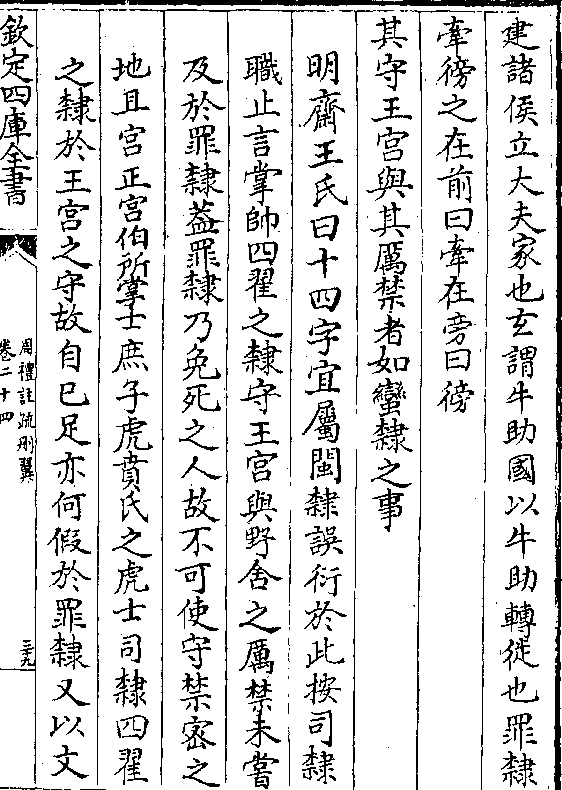 建諸侯立大夫家也玄謂牛助國以牛助轉徙也罪隸
牽徬之在前曰牽在旁曰徬
其守王宮與其厲禁者如蠻隸之事
明齋王氏曰十四字宜屬閩隸誤衍於此按司隸
職止言掌帥四翟之隸守王宮與野舍之厲禁未嘗
及於罪隸葢罪隸乃免死之人故不可使守禁宻之
地且宮正宮伯所掌士庶子虎賁氏之虎士司隸四翟
之隸於王宮之守故自已足亦何假於罪隸又以文
欽定四庫全書
周禮註疏刪翼
卷二十四
三九